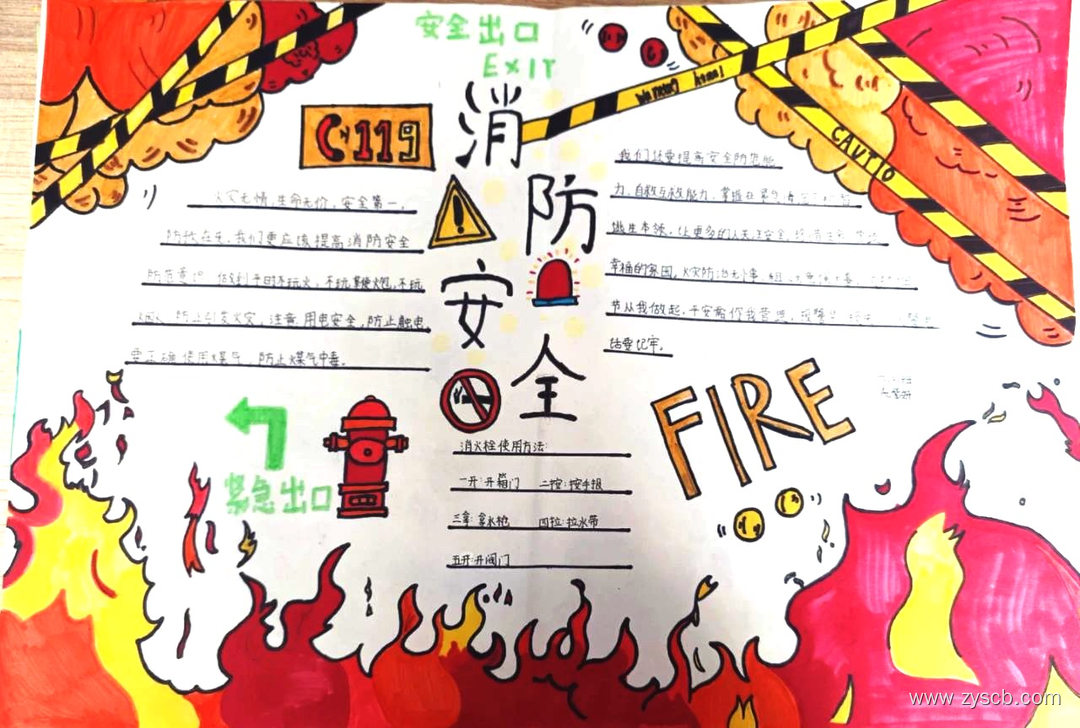 安全出口
EXIT
119
消防安全
CAUTIO
火灾无情,生命无价,安全第一,
防火在先,我们更应该提高消防安全
防范意识 做到平时不玩火,不玩 炮,不玩
火,防止引发火灾,注意用电安全,防止触电,
要正确使用煤气,防止煤气中毒。
我们还要提高安全防范能
力,自救与 救能力,掌握
逃生本领,让更多的人关注安全,
幸福的家园,火灾防治无小事,
节从我做起,平安需你我营造,报警
话要记牢。
FIRE
紧急出口
消火栓使用方法:
一开:开箱门 二按:按手报
三拿:拿水枪 四拉:拉水带
五开:开阀门
www.zyscb.com